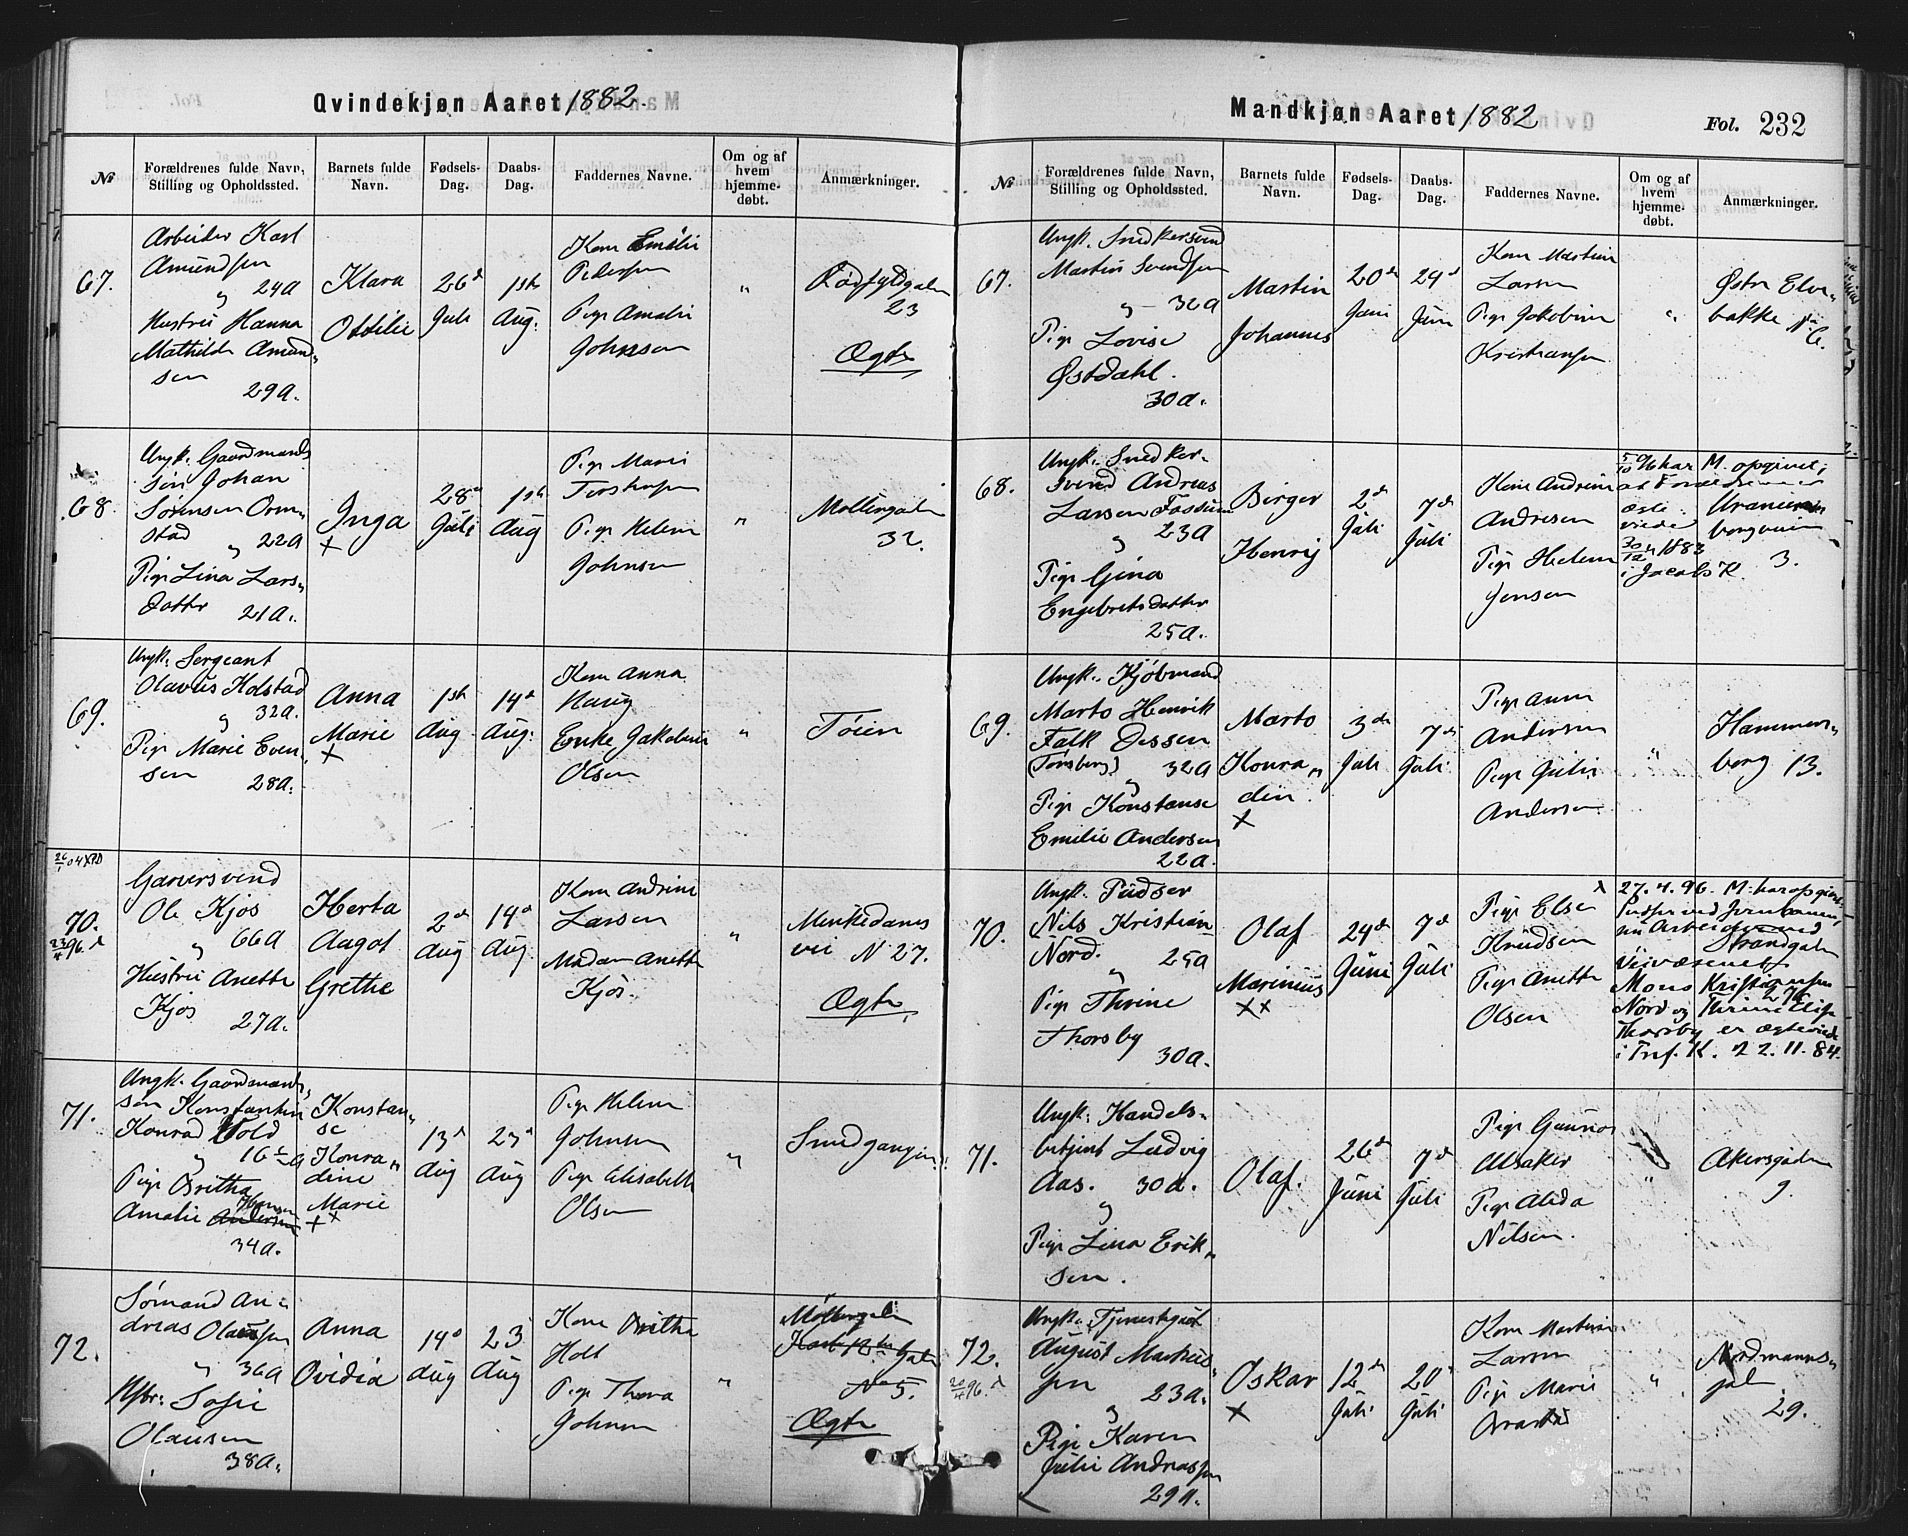 Qvindekjøn Aaret 1882.
№
Forældrenes fulde Navn,
Stilling og Opholdssted.
Barnets fulde
Navn.
Fødsels-
Dag.
Daabs-
Dag.
Faddernes Navne.
Om og af
hvem
hjemme-
døbt.
Anmærkninger.
67.
Arbeider Karl
Amundsen
" 24 A
Hustru Hanna
Mathilde Amund„
sen
29 A.
Klara
Ottilie
26d
Juli
1ste
Aug.
Kone Emilie
Pedersen
Pige Amalie
Johnsen
"
Rødfyldgaden
23
Ægte
68.
Ungk. Gaardmands
søn Johan
Sørensen Orm„
stad " 22 A
Pige Lina Lars„
datter 21 A.
Inga
+
28d
Juli
1ste
Aug
Pige Marie
Torstensen
Pige Helene
Johnsen
"
Møllergaden
32.
69.
Ungk. Sergeant
Olavus Holstad
" 32 A.
Pige Marie Even„
sen
28 A.
Anna
Marie
+
1ste
Aug
14d
Aug.
Kone Anna
Haug
Enke Jakobine
Olsen
"
Tøien
70.
23/4 96.
Garversvend
Ole Kjos
" 66 A
Hustru Anette
Kjos
27 A.
Herta
Aagot
Grethe
2d
Aug
14d
Aug.
Kone Andrine
Larsen
Madam Anette
Kjos.
"
Munkedams
vei N 27.
Ægte
71.
Ungk. Gaardmands„
søn Konstantin
Konrad Wold
" 16½ A
Pige Britha
Hansen
Amalie Andersen
34 A.
Konstan„
se
Konra„
dine
Marie
++
13d
Aug
23d
Aug
Pige Helene
Johnsen
Pige Elisabeth
Olsen
"
Smedgangen
72.
Sømand An„
dreas Olausen
" 36 A
Hstr. Sofie
Olausen
38 A.
Anna
Ovidia
14d
Aug
23
Aug
Kone Britha
Holt
Pige Thora
Johnsen
"
Møllergaden
Karl 12tes Gade
No 5.
Ægte
Mandkjøn Aaret 1882
Fol. 232
№
Forældrenes fulde Navn,
Stilling og Opholdssted.
Barnets fulde
Navn.
Fødsels-
Dag.
Daabs-
Dag.
Faddernes Navne.
Om og af
hvem
hjemme-
døbt.
Anmærkninger.
67.
Ungk. Snedkersvend
Martin Svendsen
" 32 A
Pige Lovise
Østdahl.
30 A.
Martin
Johannes
20de
Juni
24d
Juni
Kone Martine
Larsen
Pige Jakobine
Kristiansen
"
Østre Elve„
bakke No
6.
68.
Ungk. Snedker„
svend Andreas
Larsen Fossum
" 23 A
Pige Gina
Engebretsdatter
25 A.
Birger
Henrij
2d
Juli
7de
Juli
Kone Andrine
Andresen
Pige Helene
Jensen
5/10 06 har M. opgivet,
at Forældrene er
ægte„
viede
30/12 1883
i Jacobs K.
Uranien
borgveien
3.
69.
Ungk. Kjøbmand
Marto Henrik
Falk Dessen
(Tønsberg) 32 A
"
Pige Konstanse
Emilie Andersen
22 A.
Marto
Konra„
din.
+
3de
Juli
7de
Juli
Pige Anna
Andersen
Pige Julie
Andersen
"
Hammers„
borg 13.
70.
Ungk. Pudser
Nils Kristian
Nord. 25 A
"
Pige Thrine
Thorsby
30 A.
Olaf
Marinius
++
24de
Juni
7de
Juli
Pige Else
Knudsen
Pige Anette
Olsen
27.4.96. M. har opgivet:
Pudser ved Jernbanen,
nu Arbeider ved
Veivæsenet
Strandgaden
27 b
Mons Kristiansen
Nord og Thrine Elise
Thorsby er ægteviede
i Tref. K. 22.11.84.
71.
Ungk. Handels„
betjent Ludvig
Aas. 30 A.
"
Pige Lina Erik„
sen.
Olaf.
26de
Juni
7de
Juli
Pige Gunnor
Ulsaker
Pige Alida
Nilsen.
"
Akersgaden
9.
72.
Ungk. Tjenestegut
August Markus„
sen 23 A.
"
Pige Karen
Julie Andreassen
29 A.
Oskar
+
12de
Juli
20de
Juli
Kone Martine
Larsen
Pige Marie
"
Nordmanns„
gaden
29.